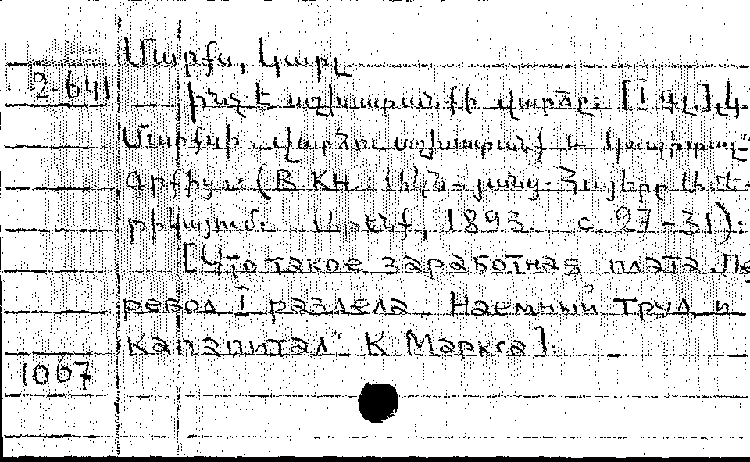 Մարքս, Կարլ
2-641
ի՞նչ է աշխատանքի վարձը: [I գլ.], Կ.
Մարքսի վարձու աշխատանք և կապիտալ"
գրքից: (В кн. Հայերը
1893. с. 27-31):
[Что такое заработная плата. Пе
ревод I раздела Наемный труд и
капапитал" К Маркса].
1067